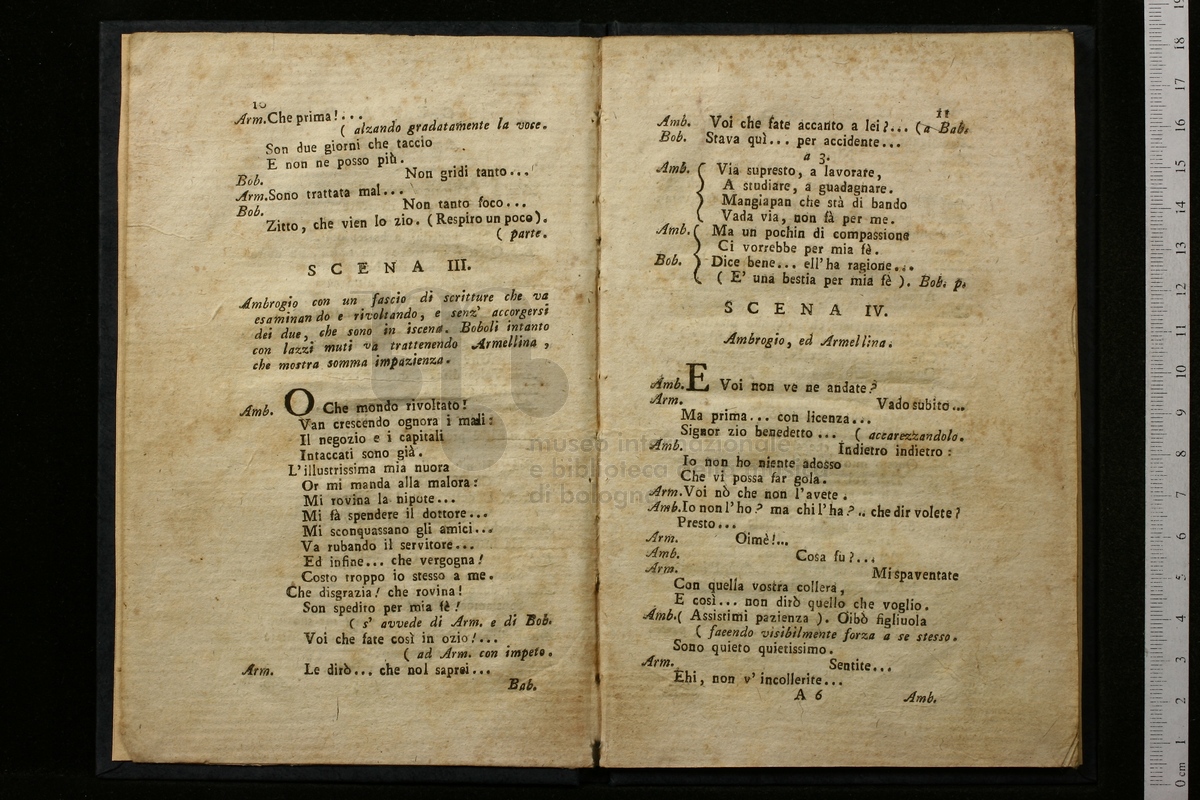 10
Arm. Che prima!...
( alzando gradatamente la voce.
Son due giorni che taccio
E non ne posso più.
Bob. Non gridi tanto...
Arm. Sono trattata mal...
Bob. Non tanto foco...
Zitto, che vien lo zio. (Respiro un poco).
( parte.
SCENA III.
Ambrogio con un fascio di scritture che va
esaminando e rivoltando, e senz' accorgersi
dei due, che sono in iscena. Boboli intanto
con lazzi muti va trattenendo Armellina,
che mostra somma impazienza.
Amb. O Che mondo rivoltato!
Van crescendo ognora i mali:
Il negozio e i capitali
Intaccati sono già.
L'illustrissima mia nuora
Or mi manda alla malora:
Mi rovina la nipote...
Mi fà spendere il dottore...
Mi sconquassano gli amici...
Va rubando il servitore...
Ed infine... che vergogna!
Costo troppo io stesso a me.
Che disgrazia! che rovina!
Son spedito per mia fè!
( s' avvede di Arm. e di Bob.
Voi che fate così in ozio!...
( ad Arm. con impeto.
Arm. Le dirò... che nol saprei...
Bab.
11
Amb. Voi che fate accanto a lei?... (a Bab.
Bob. Stava quì... per accidente...
a 3.
Amb. Via supresto, a lavorare,
A studiare, a guadagnare.
Mangiapan che stà di bando
Vada via, non fà per me.
Amb. Ma un pochin di compassione
Ci vorrebbe per mia fè.
Bob. Dice bene... ell'ha ragione...
( E' una bestia per mia fè ). Bob. p.
SCENA IV.
Ambrogio, ed Armellina.
Amb. E Voi non ve ne andate?
Arm. Vado subito...
Ma prima... con licenza...
Signor zio benedetto... ( accarezzandolo.
Amb. Indietro indietro:
Io non ho niente adosso
Che vi possa far gola.
Arm. Voi nò che non l'avete.
Amb. Io non l'ho? ma chi l'ha?.. che dir volete?
Presto...
Arm. Oimè!...
Amb. Cosa fu?...
Arm. Mi spaventate
Con quella vostra collera,
E così... non dirò quello che voglio.
Amb. ( Assistimi pazienza ). Oibò figliuola
( facendo visibilmente forza a se stesso.
Sono quieto quietissimo.
Arm. Sentite...
Ehi, non v' incollerite...
A 6 Amb.
museo internazionale
e biblioteca
di bologna
0 cm 1 2 3 4 5 6 7 8 9 10 11 12 13 14 15 16 17 18 19